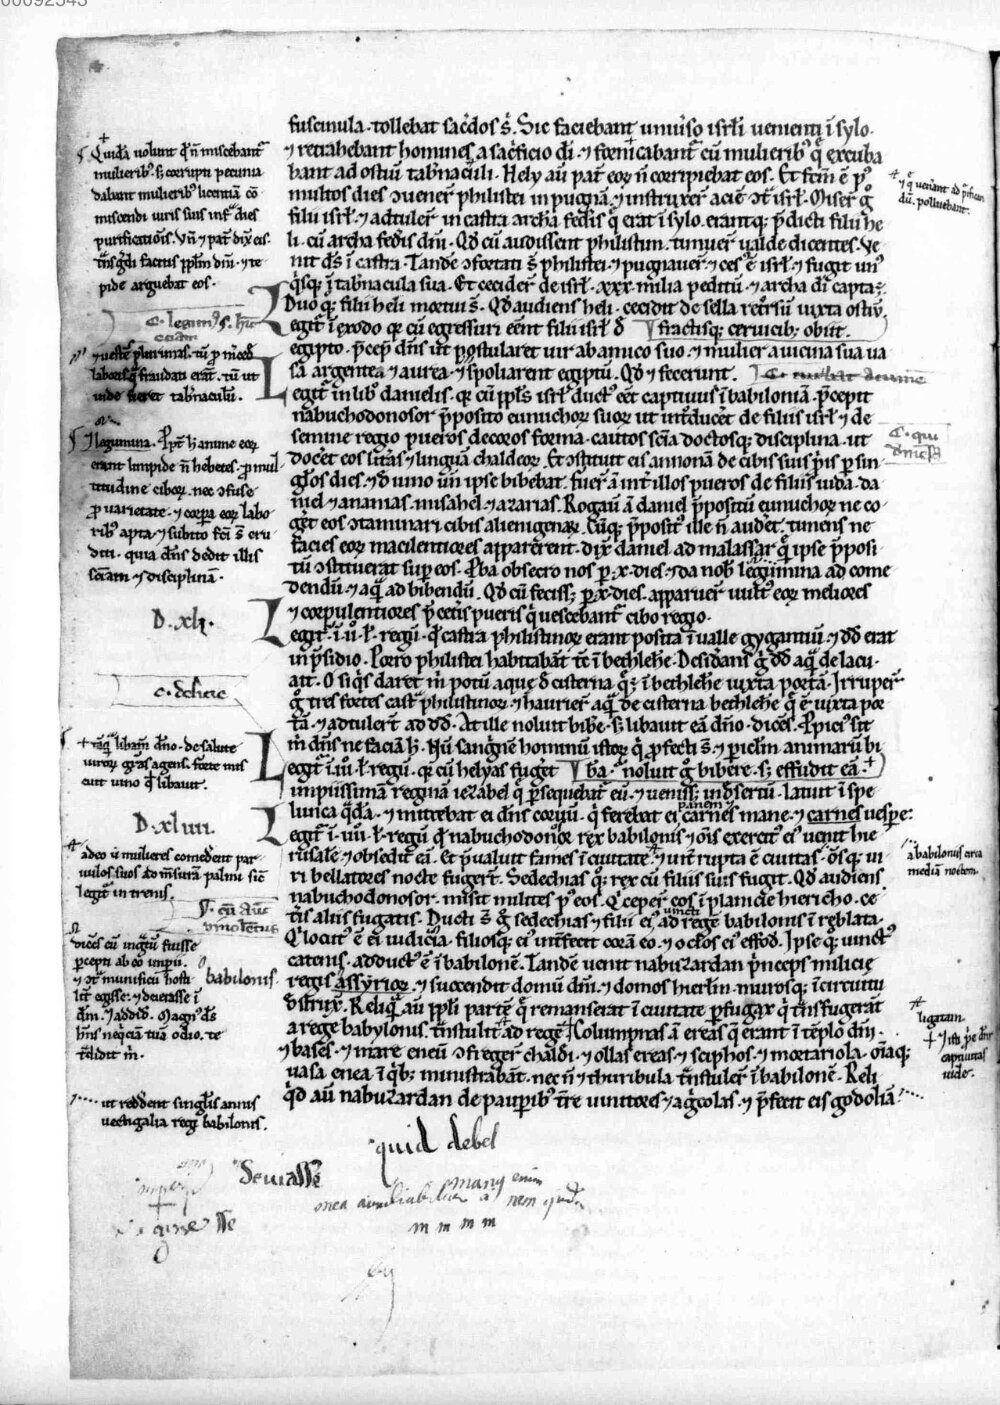 00092543
fuscinula · tollebat sac̄dos ẜ. Sic faciebant uniu͛so isrl̄i uenienti ī sylo·
⁊ retrahebant homines a sac̄ficio dī · ⁊ fornicabant᷑ cū mulierib᷒ q̄ excuba
bant ad ostiū tab̄naculi · Hely aū pat̄ eoꝝ n̄ corripiebat eos. Et fc̄m ē p᷒
multos dies ↄuener̄ philistei in pugnā ⁊ instruxer̄ aciē ↄt̄ isrl̄.
filii isrl̄ ⁊ adtuler̄ in castra archā fed̄is q̄ erat ī sylo. erantq; p̄dicti filii he
li · cū archa fed̄is dn̄i · Qd̄ cū audissent philistiim · timuer̄ ualde dicentes. Ve
nit ds̄ ī castra · Tandē ↄfortati ẜ philistei · ⁊ pugnauer̄ ⁊ ces᷒ ē isrl̄ ⁊ fugit un᷒
q̇sq; ī tab̄nacula sua · Et cecider̄ de isrl̄ · xxx · milia peditū · ⁊ archa dī capta ÷
Duo q; filii heli mortui ẜ · Qd̄ audiens heli · cecidit de sella ret̄rsū iuxta ostiū
Legit᷑ ī exodo qr̄ cū egressuri eēnt filii isrl̄ đ fractisq; ceruicib; obiit.
egipto · p̄cep̄ dn̄s ut postularet uir ab amico suo · ⁊ mulier a uicina sua ua
sa argentea ⁊ aurea · ⁊ spoliarent egiptū · Qd̄ ⁊ fecerunt.
Legit᷑ in lib᷒ danielis · qr̄ cū ppl̄s isrl̄ duct᷒ eēt captiuus ī babiloniā · p̄cepit
nabuchodonosor p̄posito eunuchoꝝ suoꝝ ut int̄ducēt de filiis isrl̄ ⁊ de
semine regio pueros decoros forma · cautos sc̄ia doctosq; disciplina · ut
docēt eos litt̄as ⁊ linguā chaldeoꝝ. Et ↄstituit eis annonā de cibis suis p̄is ꝑ sin
gl̄os dies · ⁊ đ uino uñ ipse bibebat · fuer̄ ā int̄ illos pueros de filiis iuda · da
niel ⁊ ananias · misahel ⁊ azarias. Rogauī ā daniel p̄positū eunuchoꝝ ne co
gēt eos ↄtaminari cibis alienigenaꝝ. Cūq; p̄posit᷒ ille n̄ audēt · timens ne
facies eoꝝ macilentiores apparēnt · dix̄ daniel ad malassar q̄ ipse p̄posi
tū ↄstituerat suꝑ eos. ꝓba obsecro nos ꝑ · x · dies · ⁊ da nob̄ legumina ad come
dendū · ⁊ aq̄ ad bibendū. Qd̄ cū feciss; ꝑ · x · dies · apparuer̄ uult᷒ eoꝝ meliores
⁊ corpulentiores p̄ cet̄is pueris q̇ uescebant᷑ cibo regio·
Legit᷑ · ī · ıı̊ · l · regū · qd̄ castra philistinoꝝ erant posita ī ualle gygantiū · ⁊ dd̄ erat
in p̄sidio · Porro philistei habitabāt tc̄ ī bethleh̄e. Desid̄ans g̊ dd̄ aq̄ de lacu·
ait · O siq̇s daret m̄ potū aque đ cisterna q; ī bethleh̄e iuxta portā. Irruper̄
g̊ tres fortes castr̄ philistinoꝝ · ⁊ haurier̄ aq̄ de cisterna bethleh̄e q̄ ē iuxta por
tā · ⁊ adtuler̄t ad dd̄. At ille noluit bib̄e · s; libauit eā dn̄o · dicēs. Ppici᷒ sit
m̄ dn̄s ne faciā h̄. Nū sangīnē hominū istoꝝ q̇ ꝓfecti ẜ · ⁊ ꝑiclm̄ animarū bi
Legit᷑ · ī · ıı̊ı · l · regū · qr̄ cū helyas fugēt bā · noluit g̊ bibere · s; effudit eā :
impiissimā reginā iezabel q̄ ꝑsequebat᷑ eū · ⁊ ueniss; in đsertū · latuit ī spe
lunca q̄dā · ⁊ mittebat ei dn̄s coruū · q̇ ferebat ei panem ⁊ carnes mane · ⁊ carnes uespe:
Legit᷑ · ī · ıııı̊ · l · regū q̇ nabuchodon̄osor rex babilonis ⁊ ōis exercit᷒ ei᷒ uenit hie
rusalē ⁊ obsedit eā. Et p̄ualuit fames ī ciuitate · ⁊ int̄rupta ē ciuitas · ōsq; ui
ri bellatores nocte fuger̄t. Sedechias q; rex cū filiis suis fugit. Qd̄ audiens
nabuchodonosor · misit milites p᷒ eos. Q̇ ceper̄ eos ī planicie hiericho · ce
t̄is aliis fugatis. Ducti ẜ g̊ sedechias ⁊ filii ei᷒ uincti ad regē babilonis ī reblata·
Q̇ locut᷒ ē ei iudicia · filiosq; ei᷒ int̄fecit corā eo · ⁊ oc̄los ei᷒ effod̄. Ipse q; uinct᷒
catenis · adduct᷒ ē ī babilonē. Tandē uenit nabuzardan p̄nceps milicię
regis assyrioꝝ · ⁊ succendit domū dn̄i · ⁊ domos hierl̄m · murosq; ī circuitu
đstrux̄. Reliq̄ aū ppl̄i partē q̄ remanserat ī ciuitate ꝑfugaꝝ q̇ t̄nsfugerāt
a rege babylonis · t̄nstulit ad regē. Columpnas · ā ereas q̄ erant ī tēplo dn̄i ·
⁊ bases · ⁊ mare eneū ↄfreger̄ chaldī · ⁊ ollas ereas · ⁊ sciphos · ⁊ mortariola · ōīaq;
uasa enea ī q̇b; ministrabāt · nec n̄ ⁊ thuribula t̄nstuler̄ ī babilonē. Reli
q̇d aū nabuzardan de pauꝑib᷒ t̄re uinitores ⁊ agˢcolas · ⁊ p̄fecit eis godoliā
Quidā uolunt qd̄ n̄ miscebant᷑
mulierib᷒ · s; corrupti pecunia
dabant mulierib᷒ licentiā cō
miscendi uiris suis infᵃ dies
purificatiōis. Vñ ⁊ pat̄ dix̄ eis·
pide arguebat eos·
C. legim᷒
⁊ uestē plurimas · tū ꝓ m̄ced̄
laboris q̄ fraudati erāt · tū ut
inde fieret tab̄naculū.
legumina.
erant limpide n̄ hebetes · ꝓ mul
titudine ciboꝝ · nec ↄfuse
ꝓ uarietate · ⁊ corꝑa eoꝝ labo
rib᷒ apta · ⁊ subito fc̄i ẜ eru
diti · quia dn̄s dedit illis
sc̄iam ⁊ disciplinā ·
D · xlı ·
c. delicie
aq̄ libam̄ dn̄o · de salute
uiroꝝ gr̄as agens · forte mis
cuit uino qd̄ libauit.
D · xlııı ·
adeo ū mulieres comedēnt par
uulos suos ad m̄surā palmi sic̄
legit᷑ in trenis.
cū aūt
uinolentus
dicēs eū iniq̄ū fuisse
ꝑcepti ab eo impii
babilonis·
dn̄i · ⁊ addid̄ · Magn᷒ ds̄
h̄ns neq̇cia tuā odio · te
t̄didit m̄ ·
ut reddent singl̄is annis
uectigalia regi babilonis.
⁊ q̇ uen̄ant ad
dū · polluebant.
C. qui
a babilonis circa
mediā noctem.
ligatam
captiuitas
uide.
quid debet
Seuiasse
enim
m m m m